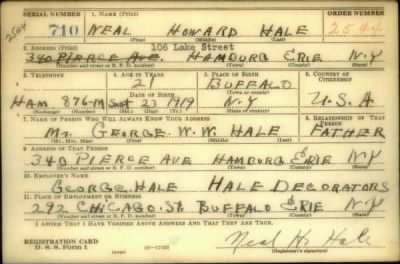 SERIAL NUMBER 1. NAME (Print) ORDER NUMBER
710 NEAL HOWARD HALE 2544
(First) (Middle) (Last)
2. ADDRESS (Print) 106 Lake Street
340 PIERCE AVE. HAMBURG ERIE N.Y
(Number and street or R. F. D. number) (Town) (County) (State)
3. TELEPHONE 4. AGE IN YEARS 5. PLACE OF BIRTH 6. COUNTRY OF CITIZENSHIP
21 BUFFALO
DATE OF BIRTH (Town or county)
HAM. 876-M 1919 N.Y U.S.A
(Exchange) (Number) (Mo.) (Day) (Yr.) (State or country)
7. NAME OF PERSON WHO WILL ALWAYS KNOW YOUR ADDRESS 8. RELATIONSHIP OF THAT PERSON
Mr. GEORGE. W. W. HALE FATHER
(Mr., Mrs., Miss) (First) (Middle) (Last)
9. ADDRESS OF THAT PERSON
340 PIERCE AVE HAMBURG ERIE N.Y
(Number and street or R. F. D. number) (Town) (County) (State)
10. EMPLOYER'S NAME
GEORGE HALE HALE DECORATORS
11. PLACE OF EMPLOYMENT OR BUSINESS
292 CHICAGO. St. BUFFALO ERIE N.Y
(Number and street or R. F. D. number) (Town) (County) (State)
I AFFIRM THAT I HAVE VERIFIED ABOVE ANSWERS AND THAT THEY ARE TRUE.
REGISTRATION CARD
D. S. S. Form 1 Neal H. Hale
(Registrant's signature)